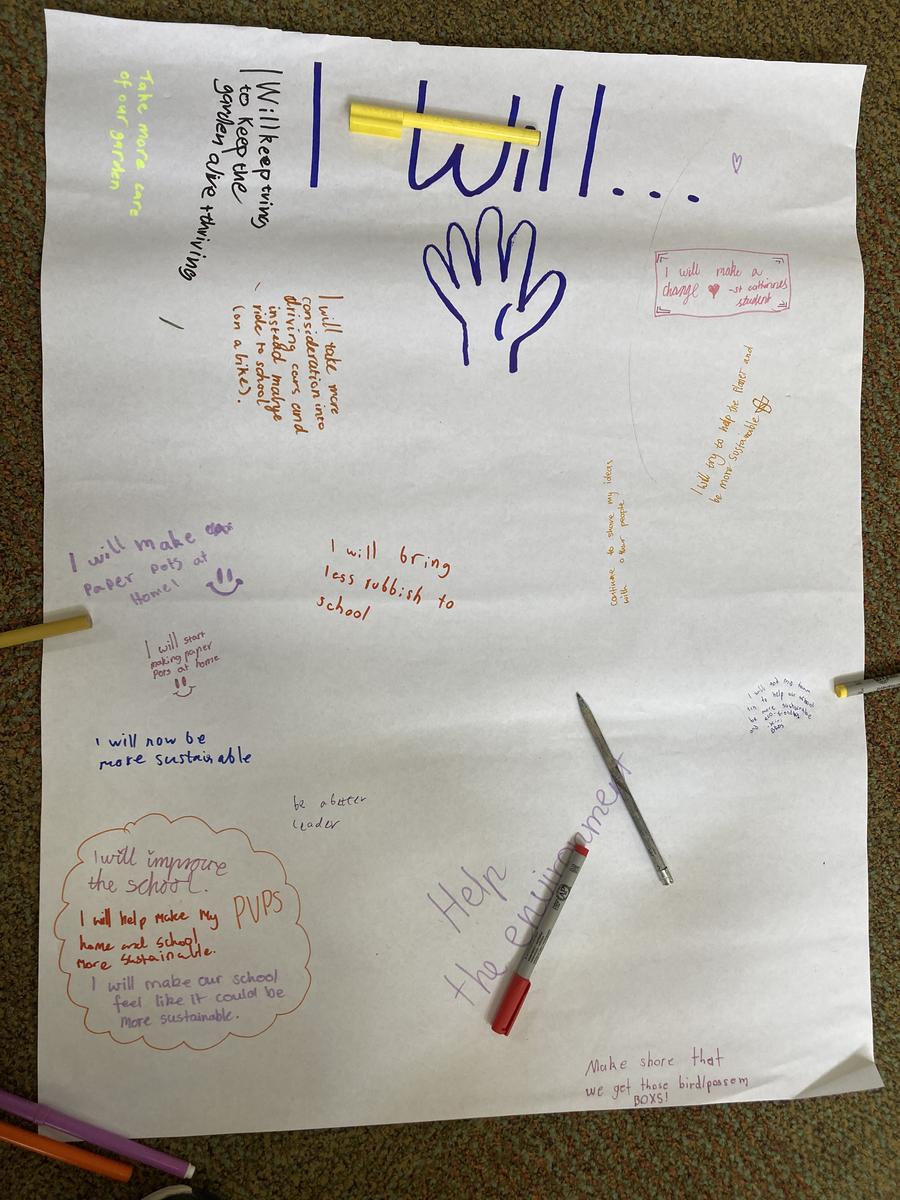 I Will...
Take more care
of our garden
I Will keep tring
to keep the
garden alive + thriving
I will make a
change ♥ -st catherines
student
I will take more
consideration into
driving cars and
instead mabye
ride to school
(on a bike).
I will try to help the Planet and
be more sustainable
continue to share my ideas
with other people
I will make
paper pots at
Home!
I will bring
less rubbish to
school
I will start
making paper
pots at home
I will now be
more sustainable
be a better
leader
I will
to help our school
be more sustainable
and eco-friendly
Help
the environment
I will improve
the school.
PVPS
I will help make My
home and school
more sustainable.
I will make our school
feel like it could be
more sustainable.
Make shore that
we get those bird/possem
BOXS!